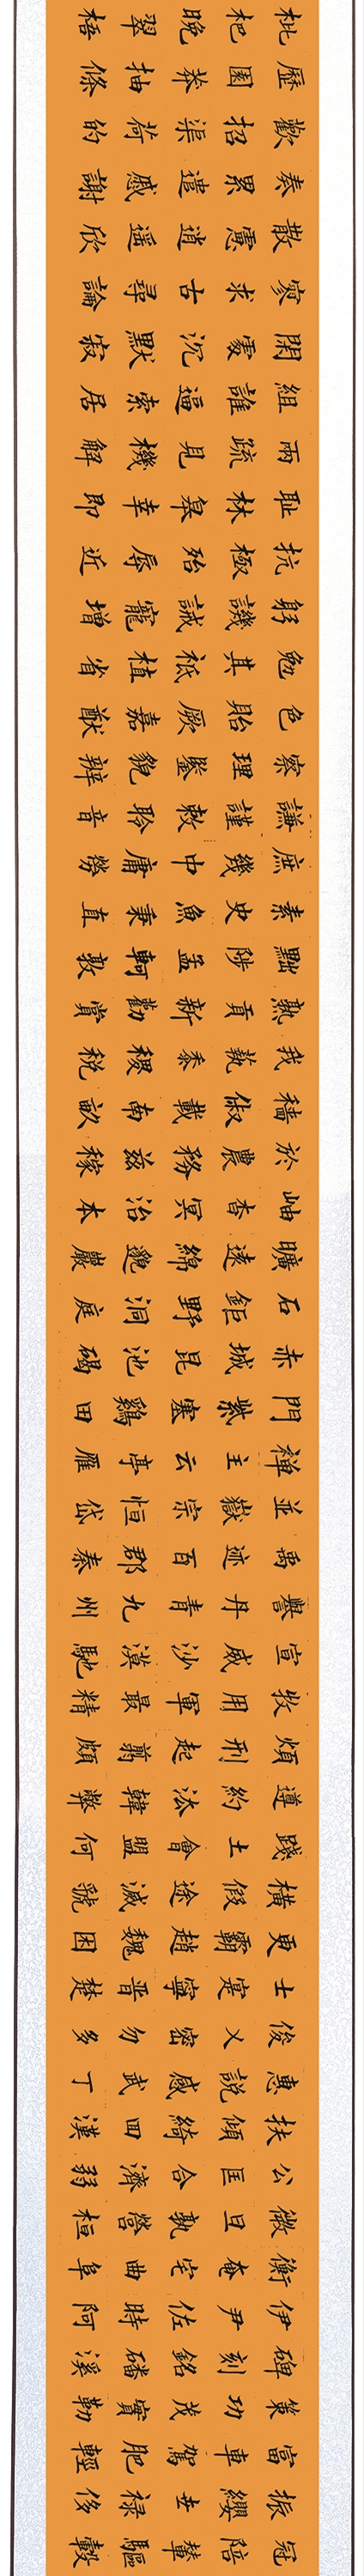 冠陪輦驅轂
振纓世禄侈
富車駕肥輕
策功茂實勒
碑刻銘磻溪
伊尹佐時阿
衡奄宅曲阜
微旦孰營桓
公匡合濟弱
扶傾綺回漢
惠説感武丁
俊乂密勿多
士寔寧晋楚
更霸趙魏困
橫假途滅虢
踐土會盟何
遵約法韓弊
煩刑起翦頗
牧用軍最精
宣威沙漠馳
譽丹青九州
禹迹百郡秦
並嶽宗恒岱
禪主云亭雁
門紫塞鷄田
赤城昆池碣
石鉅野洞庭
曠遠綿邈巖
岫杳冥治本
於農務兹稼
穡俶載南畝
我埶黍稷税
熟貢新勸賞
黜陟孟軻敦
素史魚秉直
庶幾中庸勞
謙謹敕聆音
察理鑒貌辨
色貽厥嘉猷
勉其祗植省
躬譏誡寵增
抗極殆辱近
耻林皋幸即
兩疏見機解
組誰逼索居
閑處沉默寂
寥求古尋論
散慮逍遥欣
奏累遣慼謝
歡招渠荷的
歷園莽抽條
枇杷晚翠梧